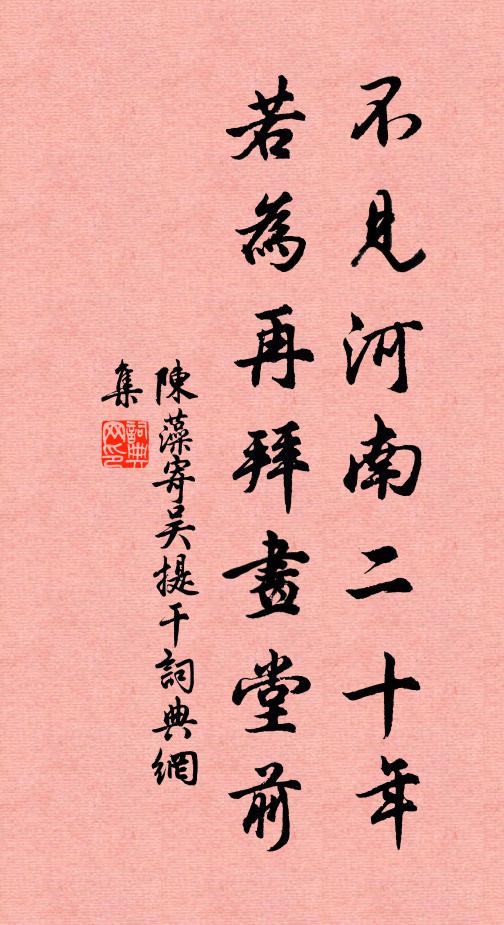 不見河南二十年
若為再拜畫堂前
陳藻寄吳提干詞典網
集
詞典
网印